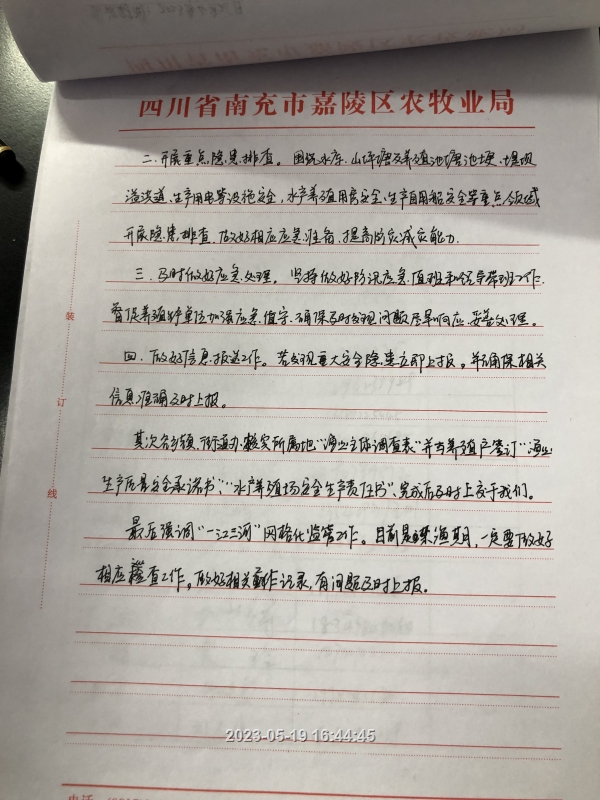 四川省南充市嘉陵区农牧业局
二、开展重点隐患排查。围绕水库、山坪塘及养殖池塘池埂、堤坝
溢洪道、生产用电等设施安全，水产养殖用房安全、生产自用船安全等重点领域
开展隐患排查，做好相应应急准备，提高防灾减灾能力。
三、及时做好应急处理。坚持做好防汛应急值班和领导带班工作，
督促养殖单位加强应急值守，确保及时发现问题尽早响应、妥善处理。
四、做好信息报送工作。若发现重大安全隐患立即上报，并确保相关
信息准确及时上报。
其次各乡镇、街道办核实所属地“渔业主体调查表”并与养殖户签订“渔业
生产质量安全承诺书”、“水产养殖场安全生产责任书”、完成后及时上交于我们。
最后强调“一江三河”网格化监管工作。目前是禁渔期，一定要做好
相应检查工作，做好相关工作记录，有问题及时上报。
装
订
线
2023-05-19 16:44:45